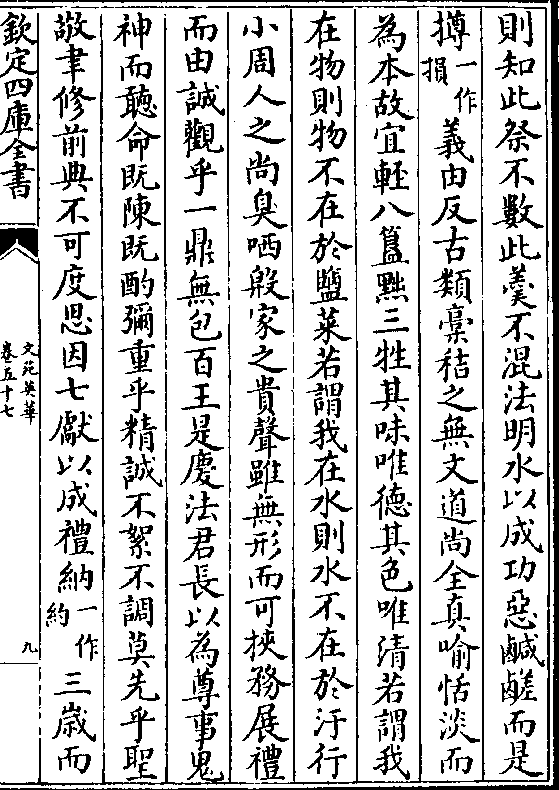 則知此祭不數此羮不混法明水以成功惡鹹鹺而是
撙一作損義由反古類稾秸之無文道尚全真喻恬淡而
為本故宜輕八簋黜三牲其味唯德其色唯清若謂我
在物則物不在於鹽菜若謂我在水則水不在於汙行
小周人之尚臭哂殷家之貴聲雖無形而可挾務展禮
而由誠觀乎一鼎無包百王是慶法君長以為尊事鬼
神而聽命既陳既酌彌重乎精誠不絮不調莫先乎聖
敬聿修前典不可度思因七獻以成禮納一作約三歳而
欽定四庫全書
文苑英華
卷五十七
九